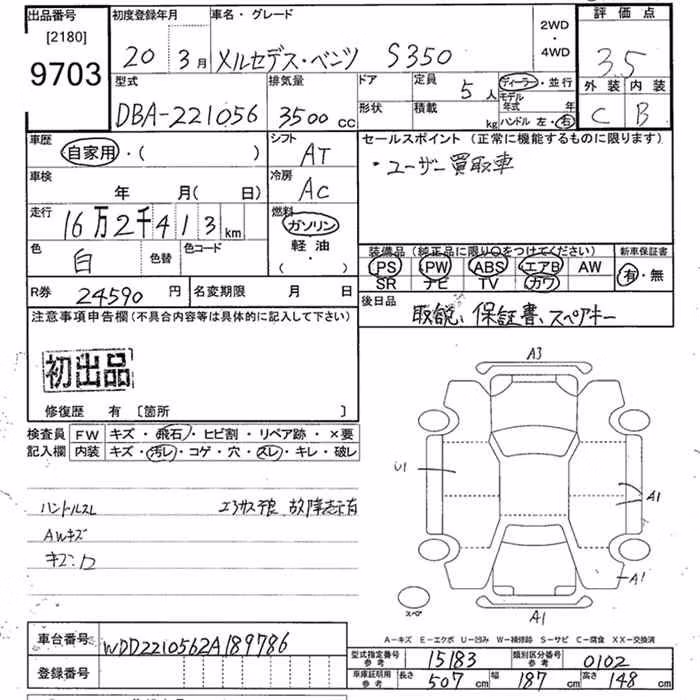 出品番号 初度登録年月 車名・グレード 2WD ・ 4WD 評価点
[2180]
9703
20 3月 メルセデス・ベンツ S350 3.5
型式 排気量 ドア 定員 5人 ディーラー・並行 外装 内装
DBA-221056 3500cc 形状 積載 kg モデル年式 年 C B
ハンドル 左・右
車歴 自家用・( ) シフト AT セールスポイント(正常に機能するものに限ります)
・ユーザー買取車
車検 年 月( 日) 冷房 AC
走行 16万2千413km 燃料 ガソリン
軽油
( ・ )
色 白 色替 色コード
装備品(純正品に限り○をつけてください) 新車保証書
PS PW ABS エアB AW 有・無
SR ナビ TV カワ
R券 24590円 名変期限 月 日
後日品 取説、保証書、スペアキー
注意事項申告欄(不具合内容等は具体的に記入して下さい)
初出品
修復歴 有 [箇所 ]
検査員 FW キズ・飛石・ヒビ割・リペア跡・×要
記入欄 内装 キズ・汚レ・コゲ・穴・スレ・キレ・破レ
ハンドルスレ エアサス不良 故障表示有
AWキズ
キズ・凹
A3
U1
A1
A1
スペア
A1
A-キズ E-エクボ U-凹み W-補修跡 S-サビ C-腐食 XX-交換済
車台番号 WDD2210562A189786
登録番号
型式指定番号 参考 15183 類別区分番号 参考 0102
車庫証明用 参考 長さ 507cm 幅 187cm 高さ 148cm